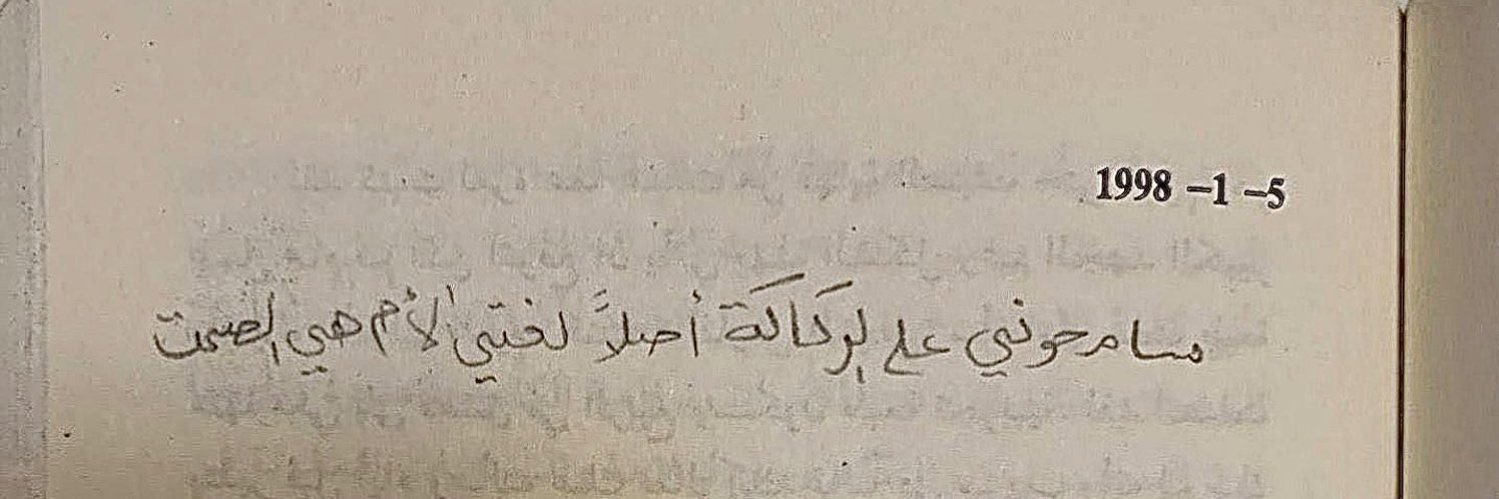 1998 –1 –5
سامحوني على الركاكة أصلاً لغتي الأم هي الصمت